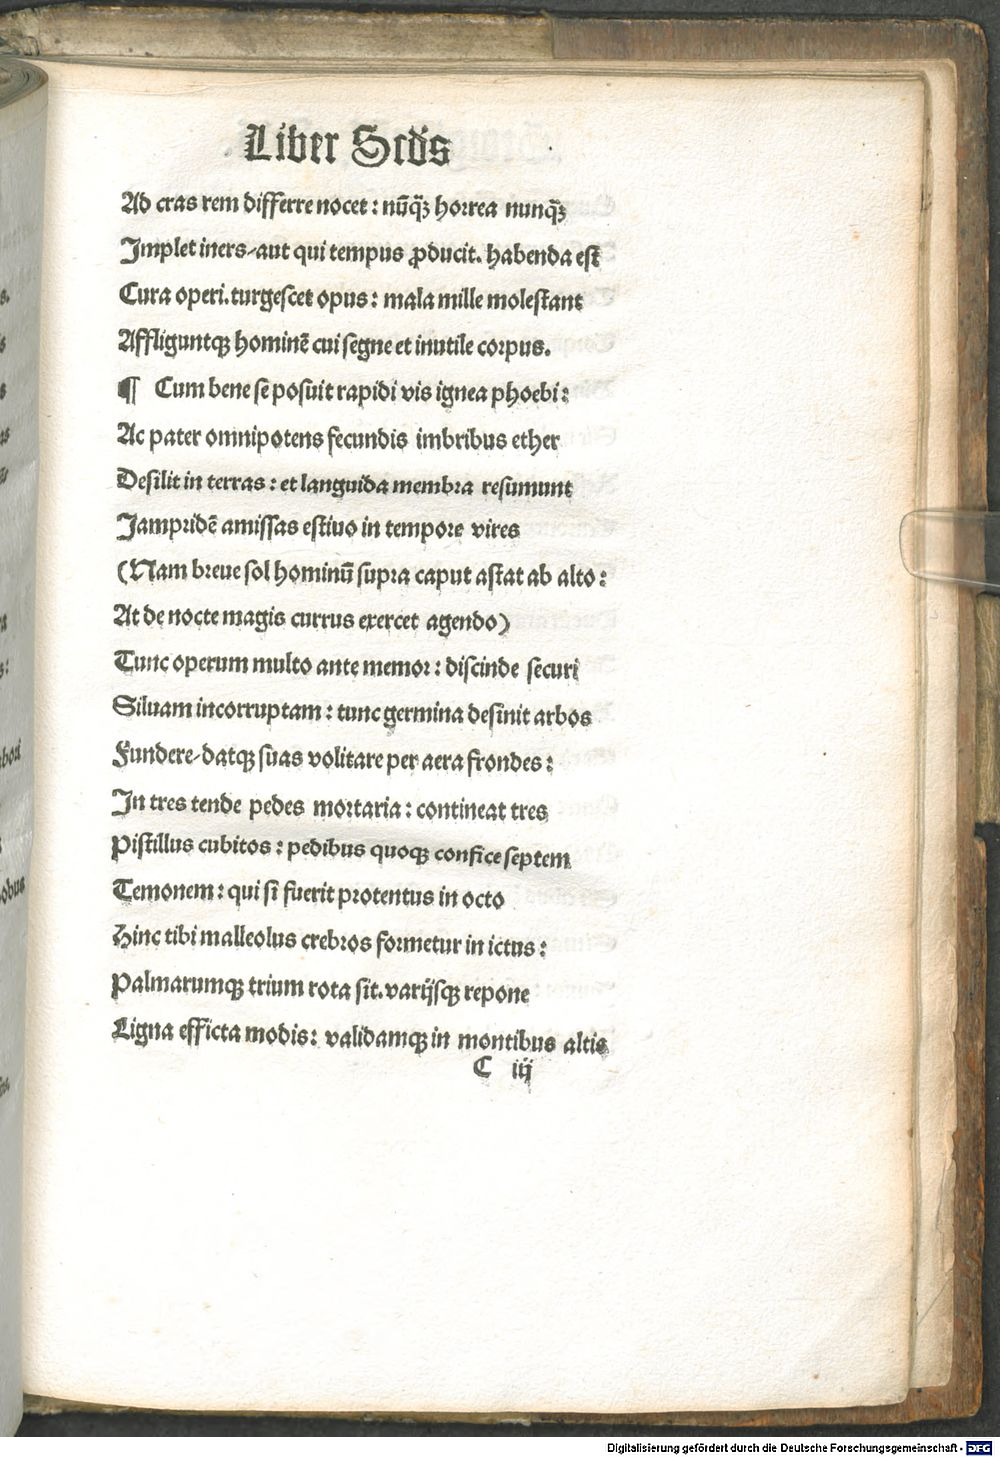 Liber Scďs
Ad cras rem differre nocet : nūq̄ꝫ horrea nunq̄ꝫ
Implet iners/aut qui tempus ꝓducit. habenda est
Cura operi. turgescet opus : mala mille molestant
Affliguntqꝫ hominē cui segne et inutile corpus.
¶ Cum bene se posuit rapidi vis ignea phoebi :
Ac pater omnipotens fecundis imbribus ether
Desilit in terras : et languida membra resumunt
Jampridē amissas estiuo in tempore vires
(Nam breue sol hominū supra caput astat ab alto :
At de nocte magis currus exercet agendo)
Tunc operum multo ante memor : discinde securi
Siluam incorruptam : tunc germina desinit arbos
Fundere/datqꝫ suas volitare per aera frondes :
In tres tende pedes mortaria : contineat tres
Pistillus cubitos : pedibus quoqꝫ confice septem
Temonem : qui si fuerit protentus in octo
Hinc tibi malleolus crebros formetur in ictus :
Palmarumqꝫ trium rota sit. varijsqꝫ repone
Ligna efficta modis : validamqꝫ in montibus altis
C iij
Digitalisierung gefördert durch die Deutsche Forschungsgemeinschaft - DFG